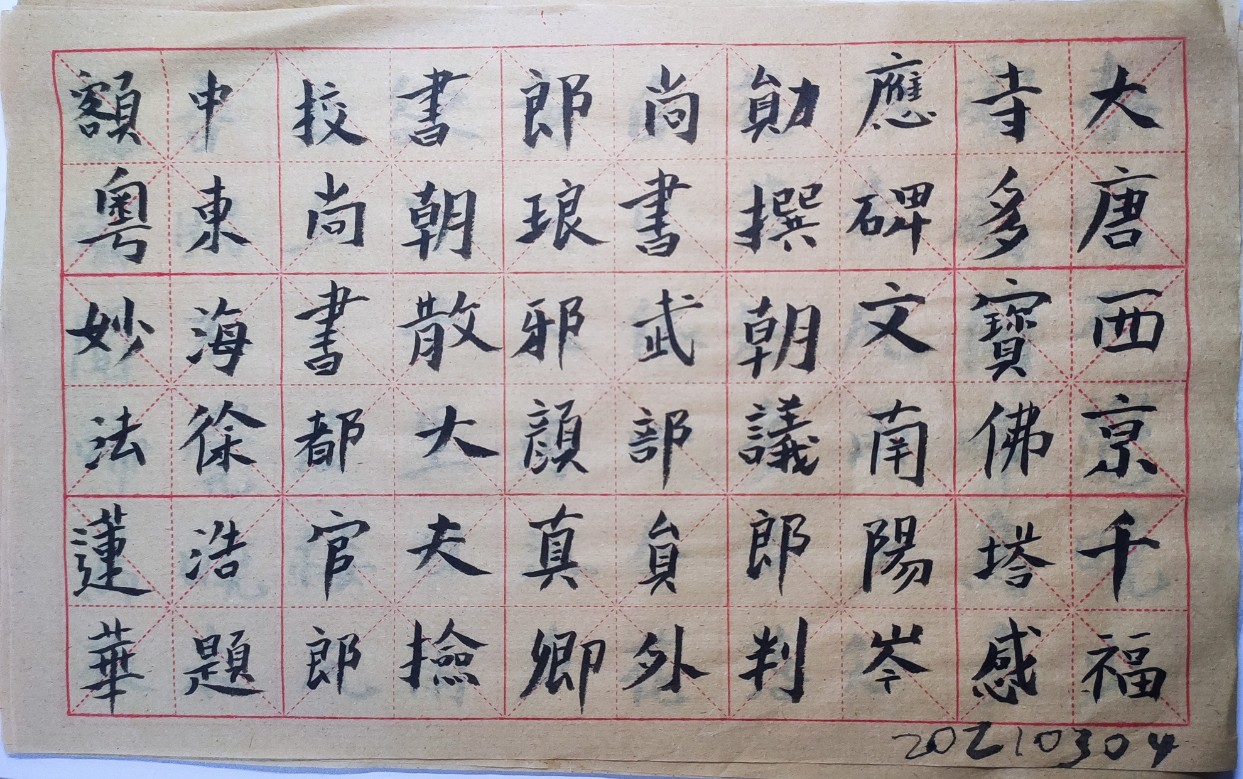 大唐西京千福
寺多寶佛塔感
應碑文南陽岑
勛撰朝議郎判
尚書武部員外
郎琅邪顏真卿
書朝散大夫撿
挍尚書都官郎
中東海徐浩題
額粵妙法蓮華
20210304